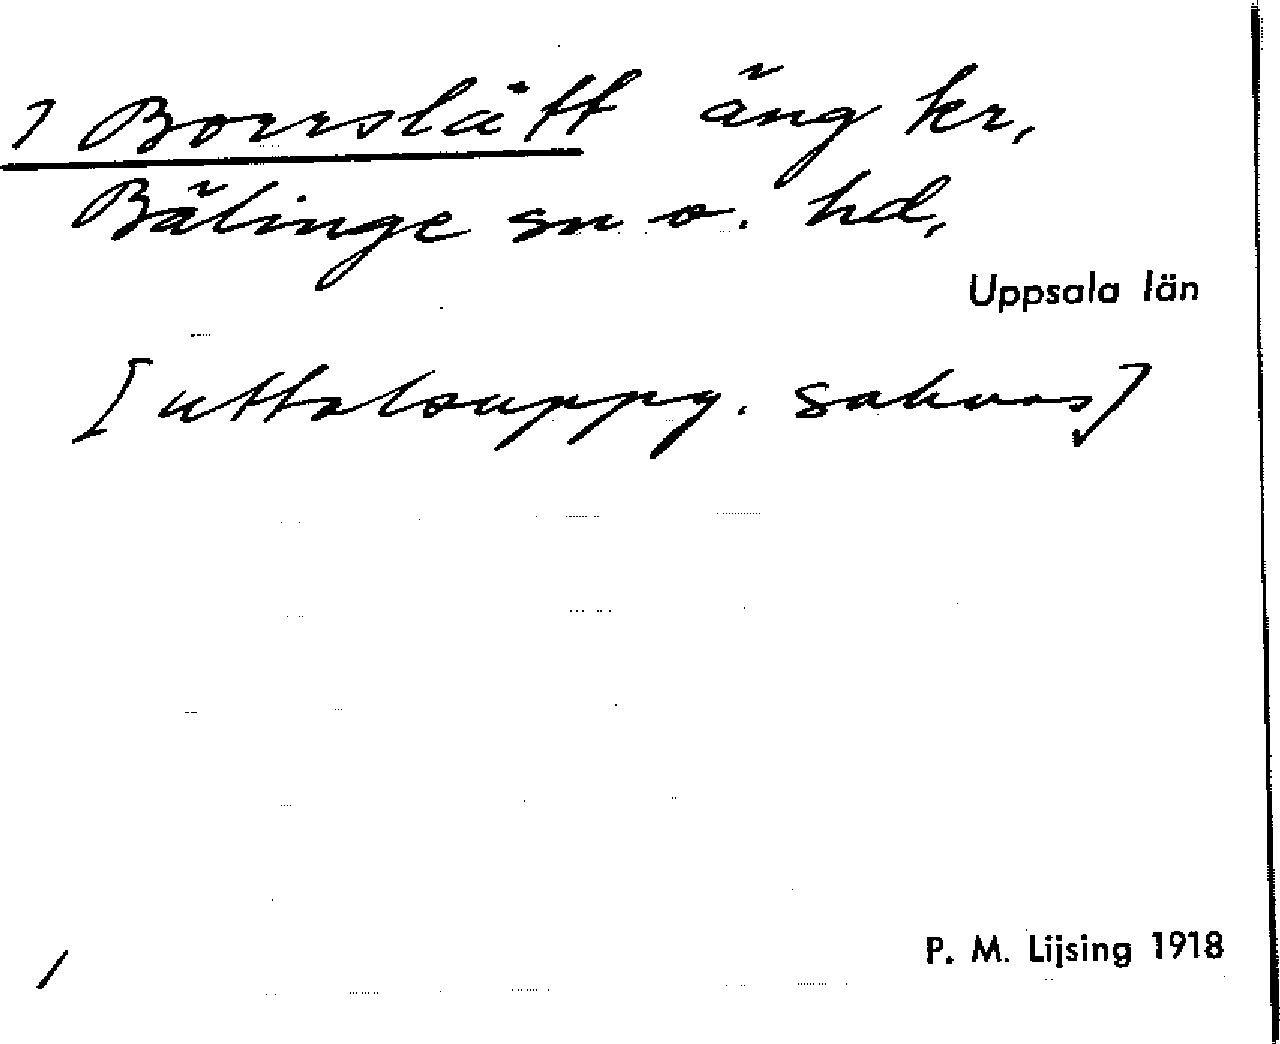 1 Borrslätt äng kr,
Bälinge sn o. hd,
Uppsala län
[uttalsuppg. saknas]
P. M. Lijsing 1918
/